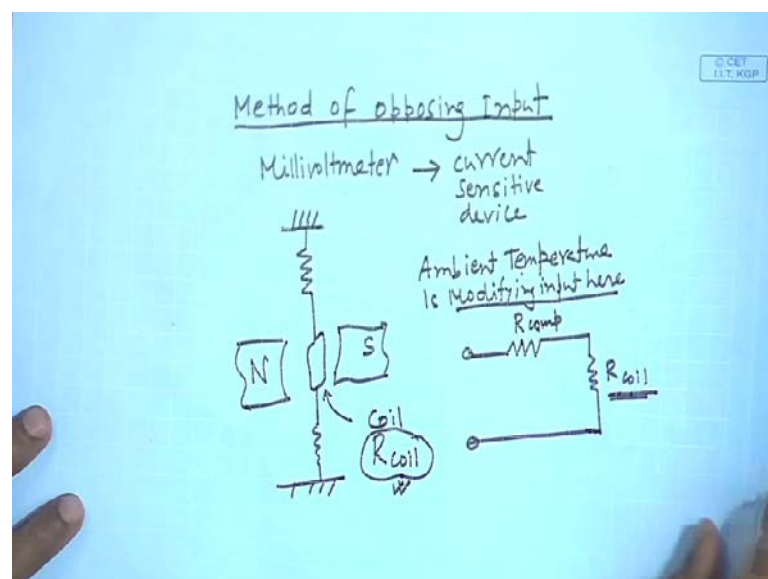 © CET
I.I.T. KGP
Method of opposing Input
Millivoltmeter → current
sensitive
device
Ambient Temperature
Is Modifying input here
R comp
N
S
R coil
Coil
R coil